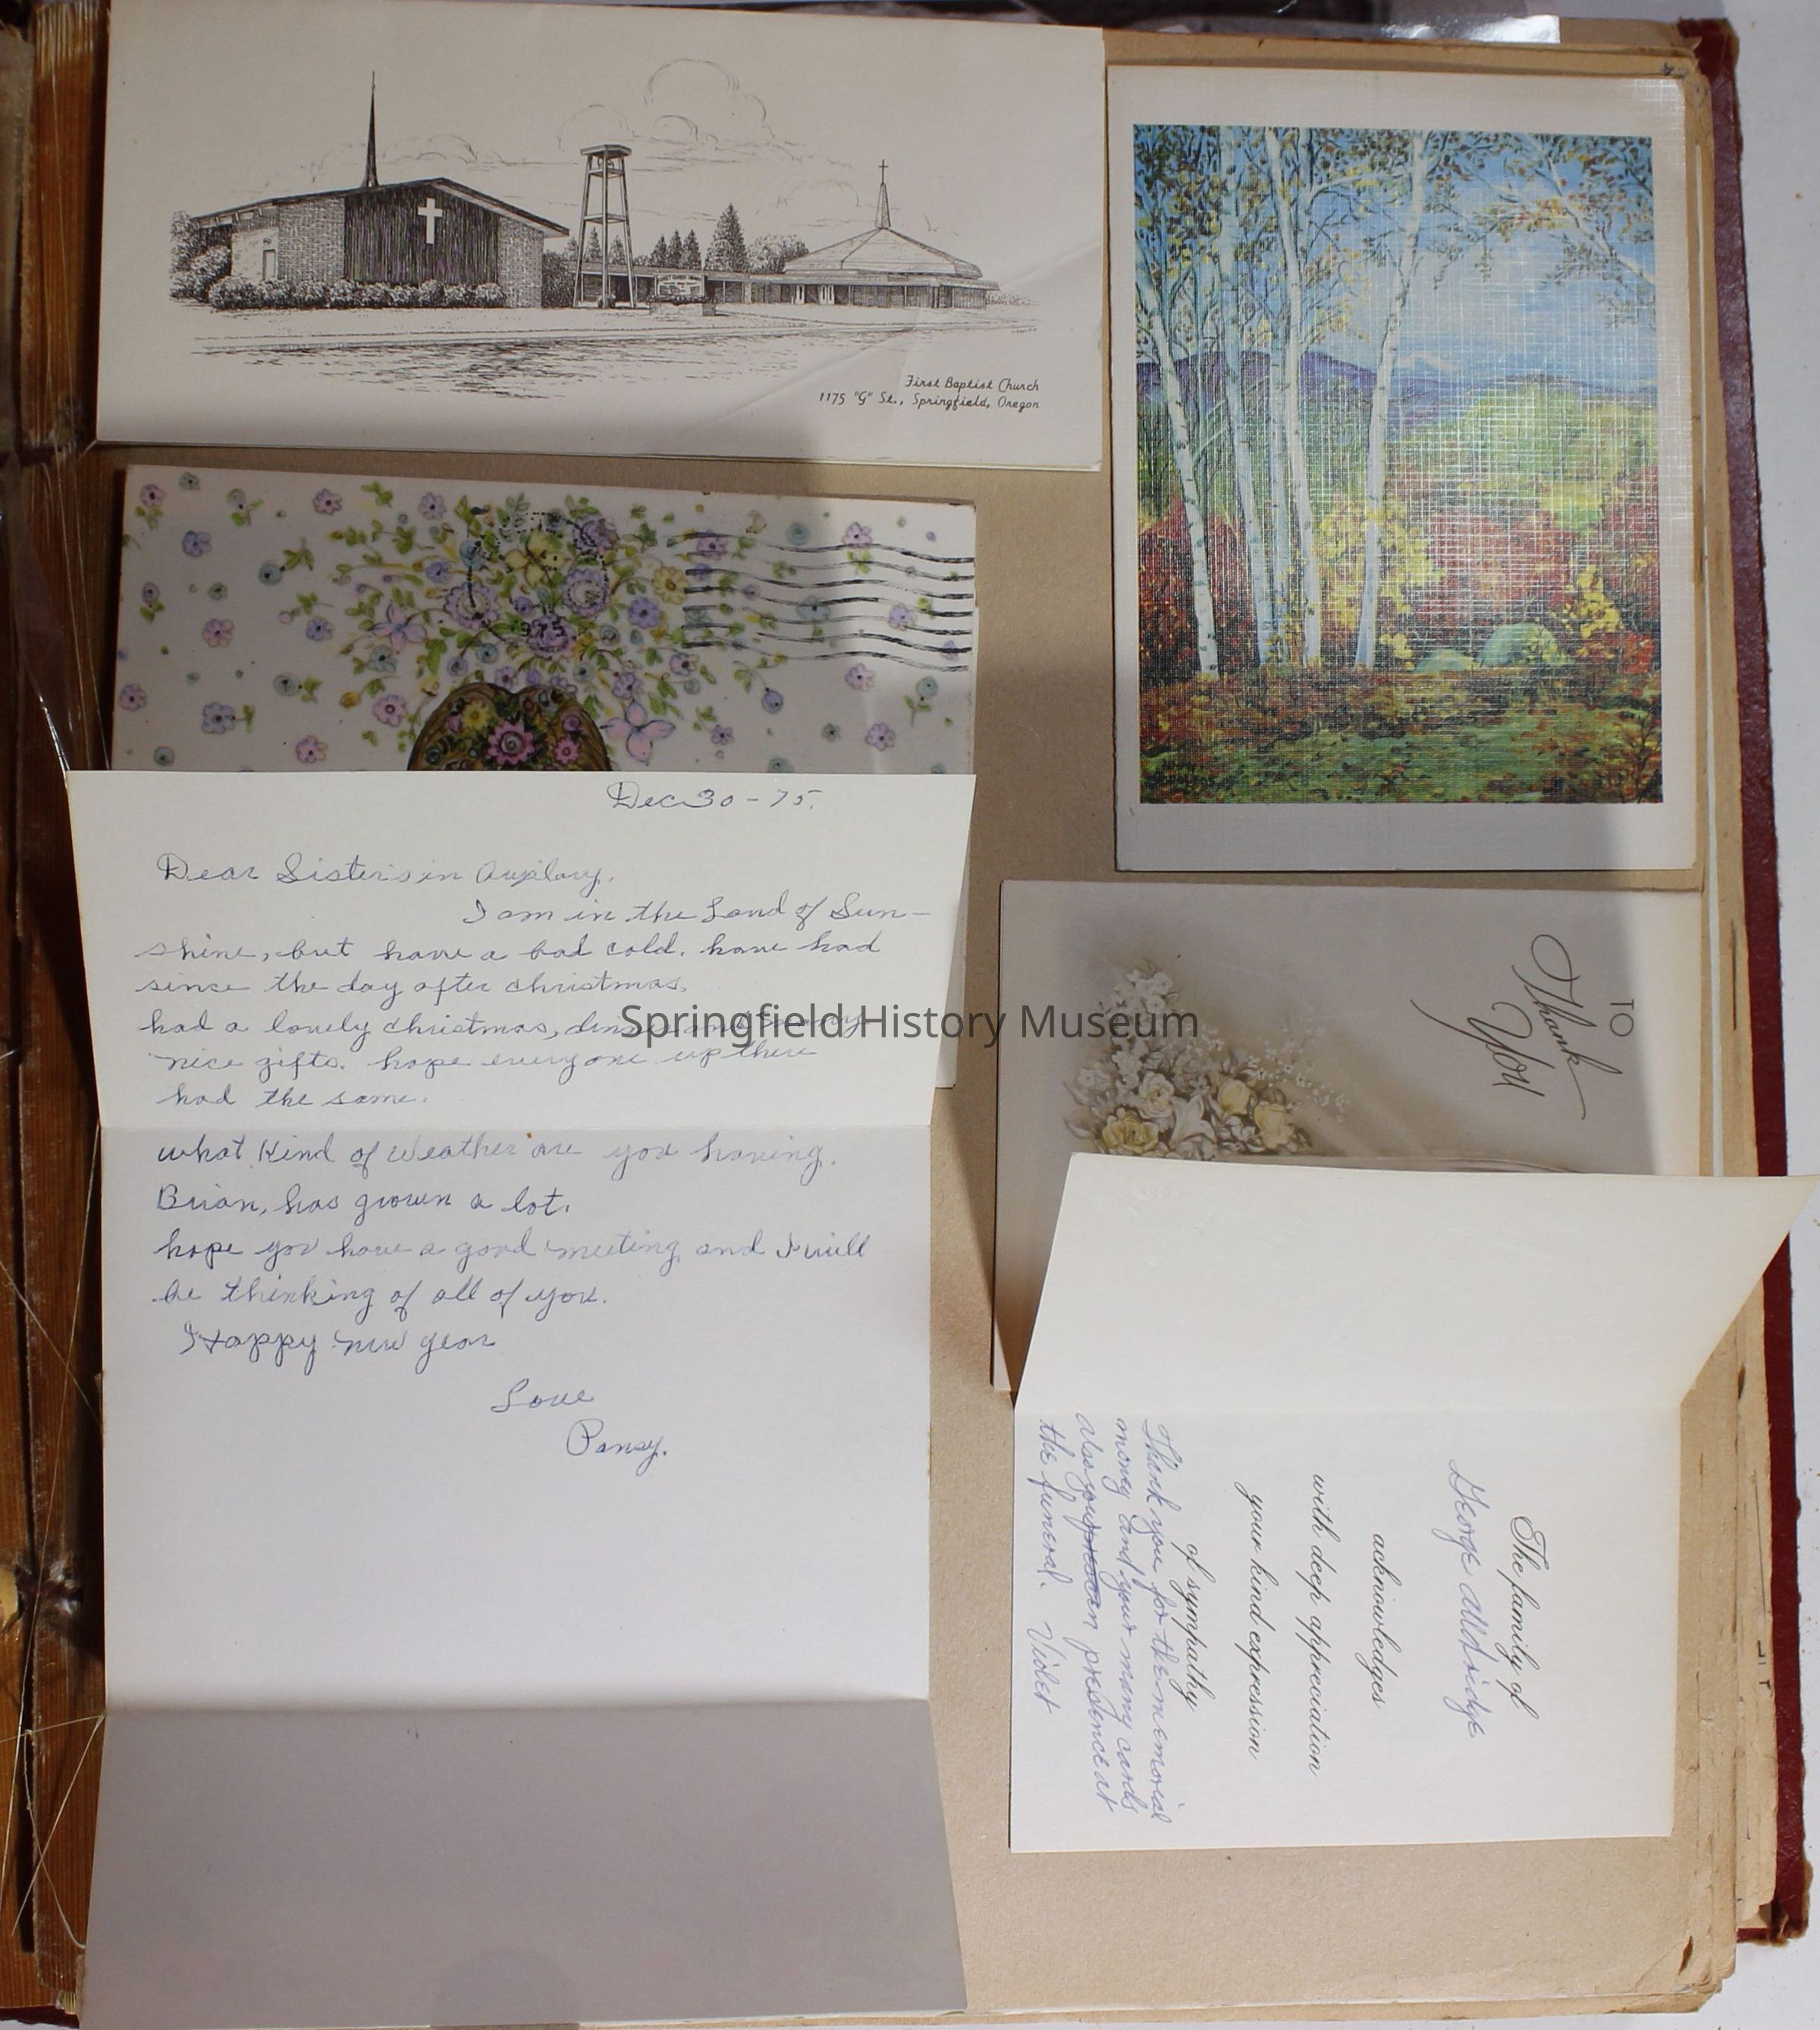 First Baptist Church
1175 "G" St., Springfield, Oregon
1975
Dec 30 - 75.
Dear Sister's in Auxilary.
I am in the Land of Sun-
shine, but have a bad cold. have had
since the day after christmas.
had a lovely christmas, dinner and many
nice gifts. hope everyone up there
had the same.
what Kind of Weather are you having.
Brian, has grown a lot.
hope you have a good meeting and I will
be thinking of all of you.
Happy new year
Love
Pansy.
TO
Thank
You
The family of
George Alldridge
acknowledges
with deep appreciation
your kind expression
of sympathy
Thank you for the memorial
money and your many cards
also your presence at
the funeral. Violet
Springfield History Museum